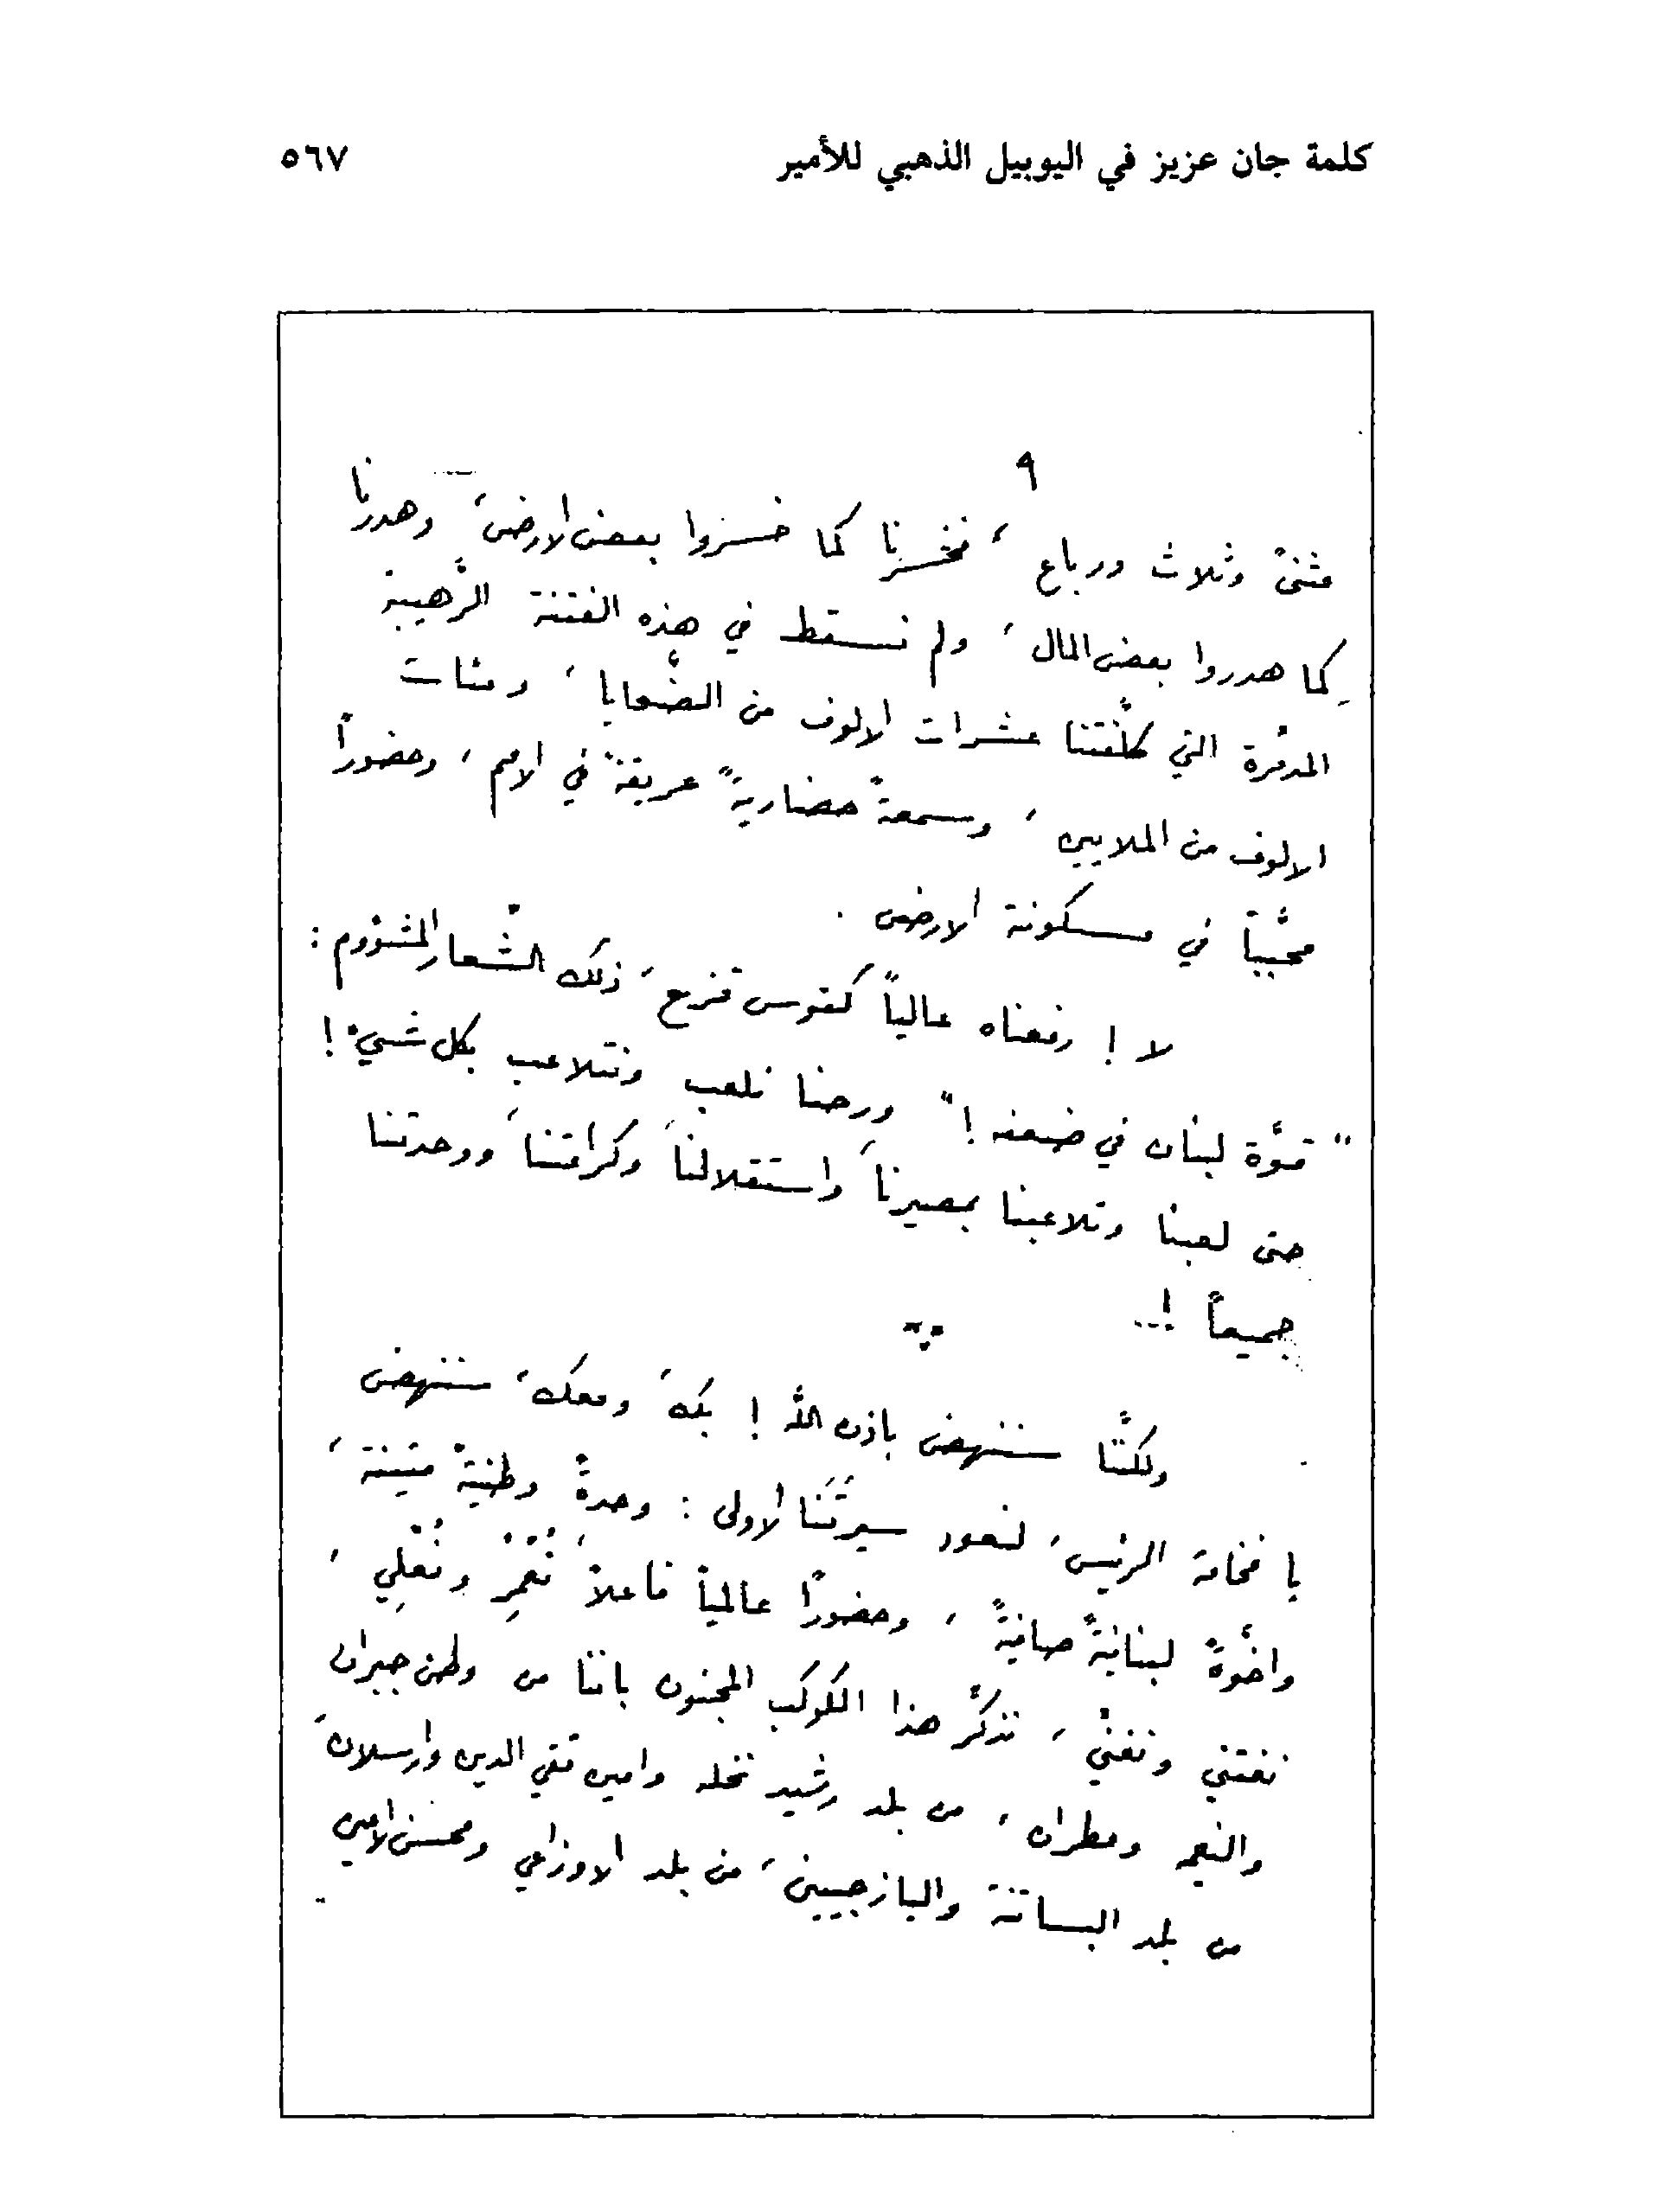 كلمة جان عزيز في اليوبيل الذهبي للأمير ٥٦٧
٩
مثنىً وثلاث ورباع ، فخسرنا كما خسروا بعض الارض ، وهدرنا
كما هدروا بعض المال ، ولم نسقط في هذه الفتنة الرَّهيبة
المدمّرة التي كلَّفتنا عشرات الالوف من الضَّحايا ، ومئات
الالوف من الملايين ، وسمعةً حضاريةً عريقةً في الامم ، وحضوراً
محبَّباً في مسكونة الارض .
لا ! رفعناه عالياً كقوس قزح ، ذلك الشّعار المشؤوم :
" قوّة لبنان في ضعفه ! " ورحنا نلعب ونتلاعب بكل شيء !
حتى لعبنا وتلاعبنا بمصيرنا ، واستقلالنا ، وكرامتنا ، ووحدتنا
جميعاً !...
ولكنَّنا سننهض باذن اللّه ! بك ، ومعك ، سننهض
يا فخامة الرئيس ، لنعود سيرتَنا الاولى : وحدةً وطنيةً متينة ،
واخوّةً لبنانيةً صافيةً ، وحضوراً عالمياً فاعلاً ، نُعَمِّرُ ونُعْلِي ،
نفتني ونغني ، نذكّر هذا الكوكب المجنون باننا من وطن جبران
والنعيمه ومطران ، من بلد رشيد نخله وامين تقي الدين وارسلان ،
من بلد البساتنة واليازجيين ، من بلد الاوزاعي ومحسن الامين